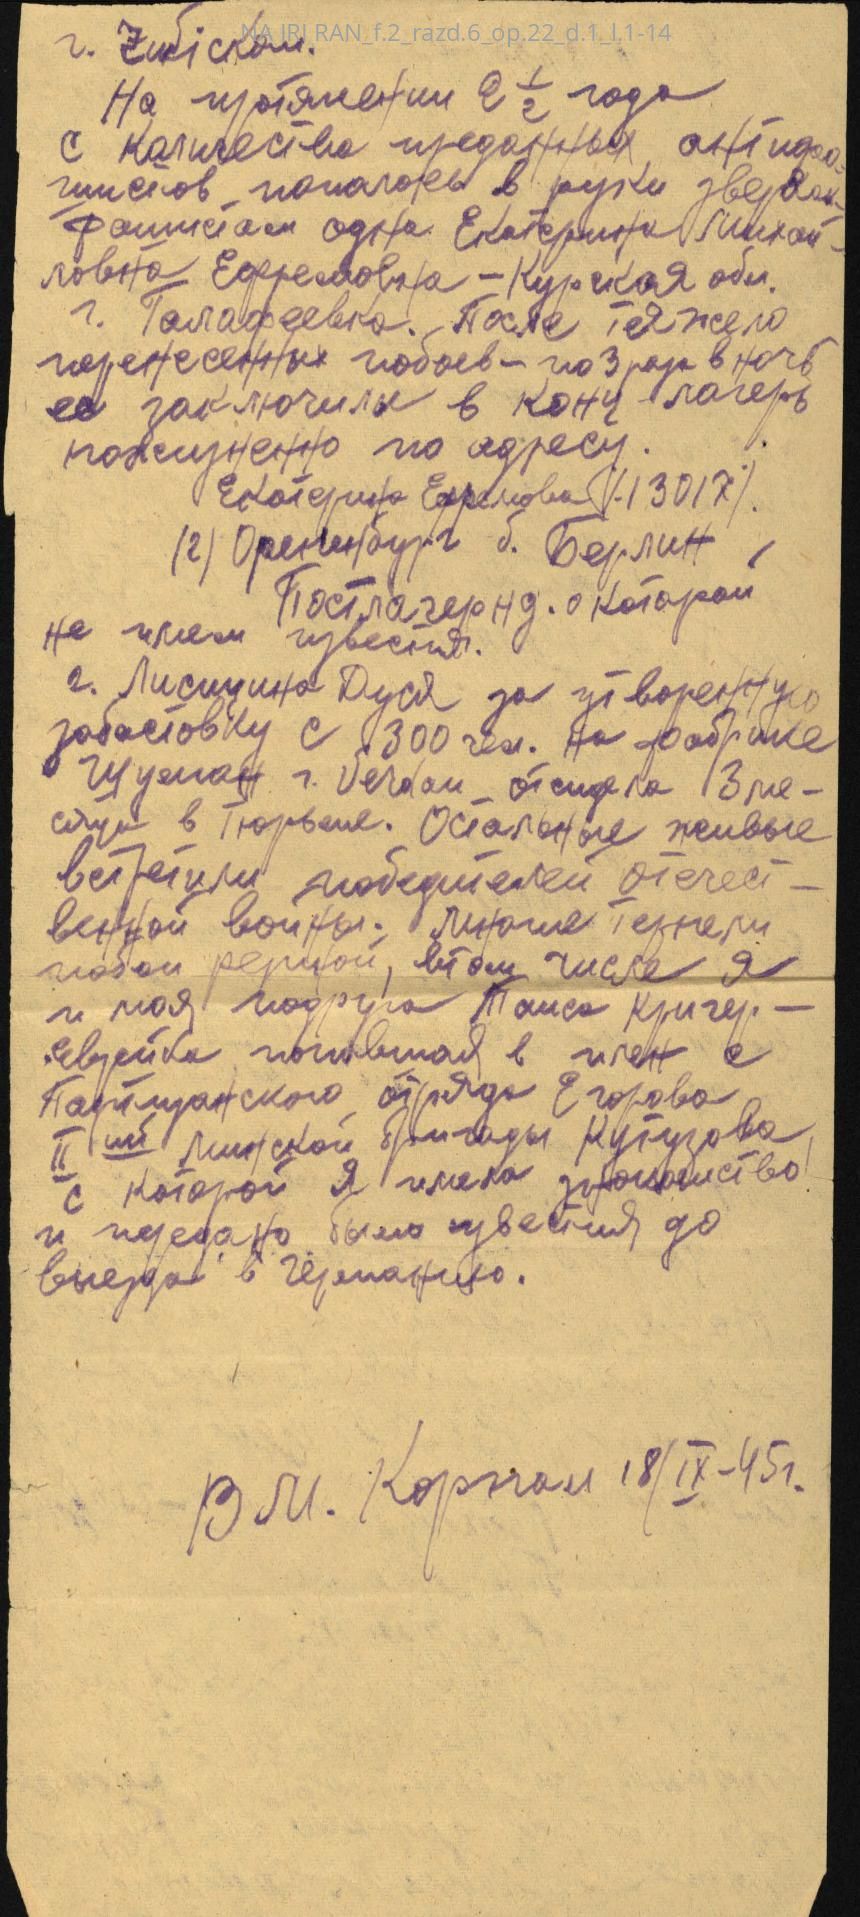 NA IRI RAN_f.2_razd.6_op.22_d.1_l.1-14
г.
На протяжении 2 1/2 года
с количества преданных антифа-
шистов попалось в руки зверям-
фашистам одна Екатерина Михай-
ловна Ефремовна – Курская обл.
г. После тяжело
перенесенных побоев – в ночь
ее заключили в конц лагерь
по адресу.
Екатерина Ефремова (-1301X).
(2) Орененбург б. Берлин,
о которой
не имеем известия.
г. Лисицина Дуся за утворенную
забастовку с 300 чел. на фабрике
Шуман г. Verdau отсидела 3 ме-
сяца в тюрьме. Остальные живые
встретили победителей отечест-
венной войны. Многие терпели
побои резиной, втом числе я
и моя подруга Таиса Кригер –
еврейка попавшая в плен с
Партизанского отряда Егорова
II ий Минской бригады Кутузова,
с которой я имела знакомство
и передано было известия до
выезда в Германию.
В М. 18/IX-45г.